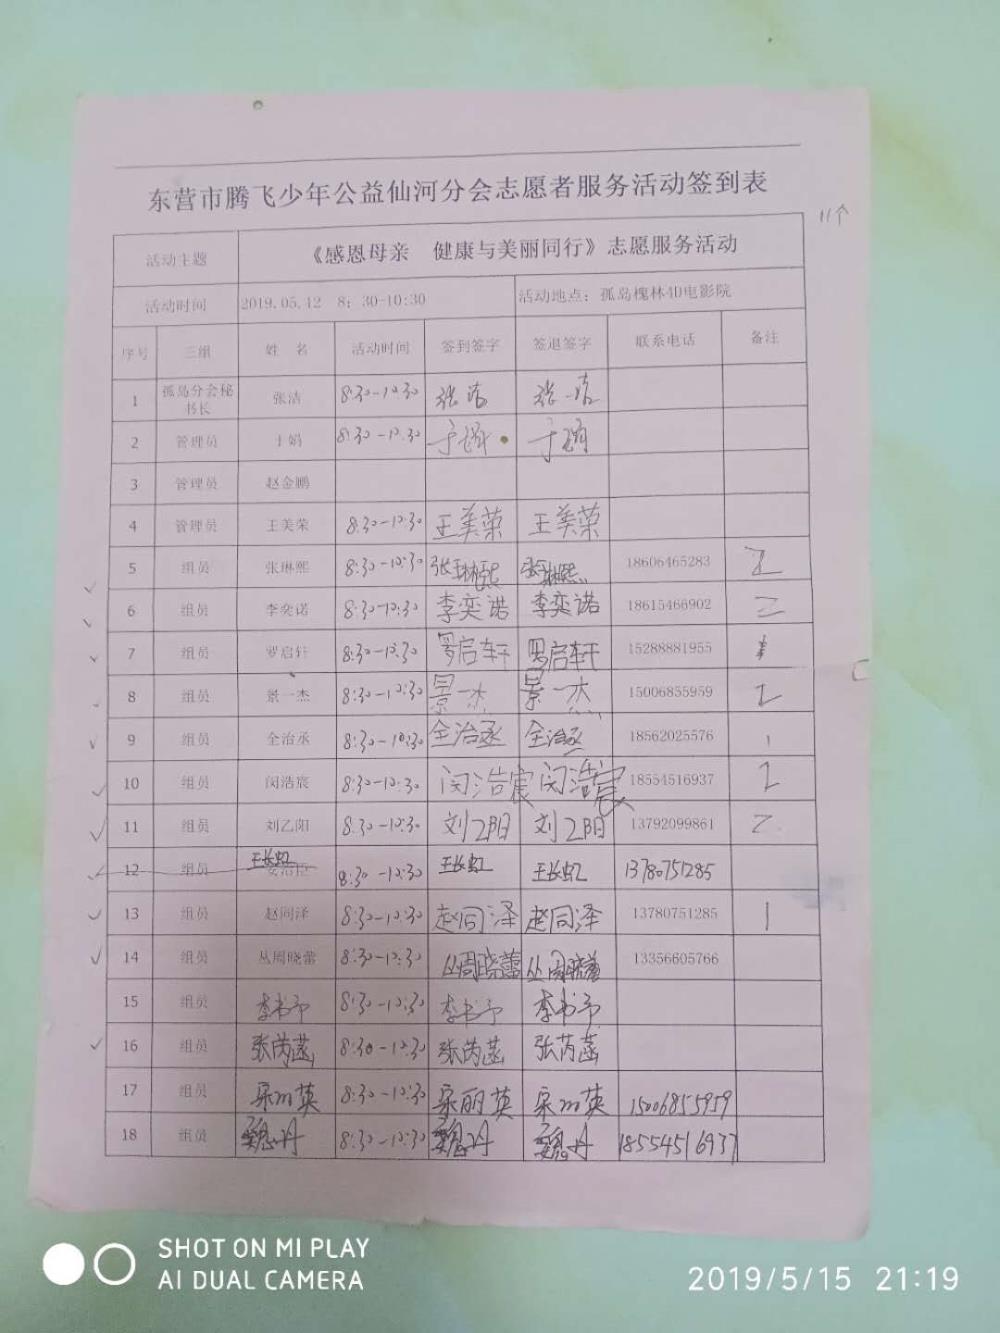 东营市腾飞少年公益仙河分会志愿者服务活动签到表
11个
活动主题 《感恩母亲 健康与美丽同行》志愿服务活动
活动时间 2019.05.12 8：30-10:30 活动地点：孤岛槐林4D电影院
序号 三组 姓 名 活动时间 签到签字 签退签字 联系电话 备注
1 孤岛分会秘书长 张洁 8:30-10:30 张洁 张洁
2 管理员 于娟 8:30-10:30 于娟 于娟
3 管理员 赵金鹏
4 管理员 王美荣 8:30-10:30 王美荣 王美荣
5 组员 张琳熙 8:30-10:30 张琳熙 张琳熙 18606465283 2
6 组员 李奕诺 8:30-10:30 李奕诺 李奕诺 18615466902 2
7 组员 罗启轩 8:30-10:30 罗启轩 罗启轩 15288881955
8 组员 景一杰 8:30-10:30 景一杰 景一杰 15006855959 2
9 组员 全治丞 8:30-10:30 全治丞 全治丞 18562025576 1
10 组员 闵浩宸 8:30-10:30 闵浩宸 闵浩宸 18554516937 2
11 组员 刘乙阳 8:30-10:30 刘乙阳 刘乙阳 13792099861 2
12 组员 王长虹 8:30-10:30 王长虹 王长虹 13780751285
13 组员 赵同泽 8:30-10:30 赵同泽 赵同泽 13780751285 1
14 组员 丛周晓蕾 8:30-10:30 丛周晓蕾 丛周晓蕾 13356605766
15 组员 李书予 8:30-10:30 李书予 李书予
16 组员 张芮菡 8:30-10:30 张芮菡 张芮菡
17 组员 宋丽英 8:30-10:30 宋丽英 宋丽英 15006855959
18 组员 魏丹 8:30-10:30 魏丹 魏丹 18554516937
SHOT ON MI PLAY
AI DUAL CAMERA
2019/5/15 21:19